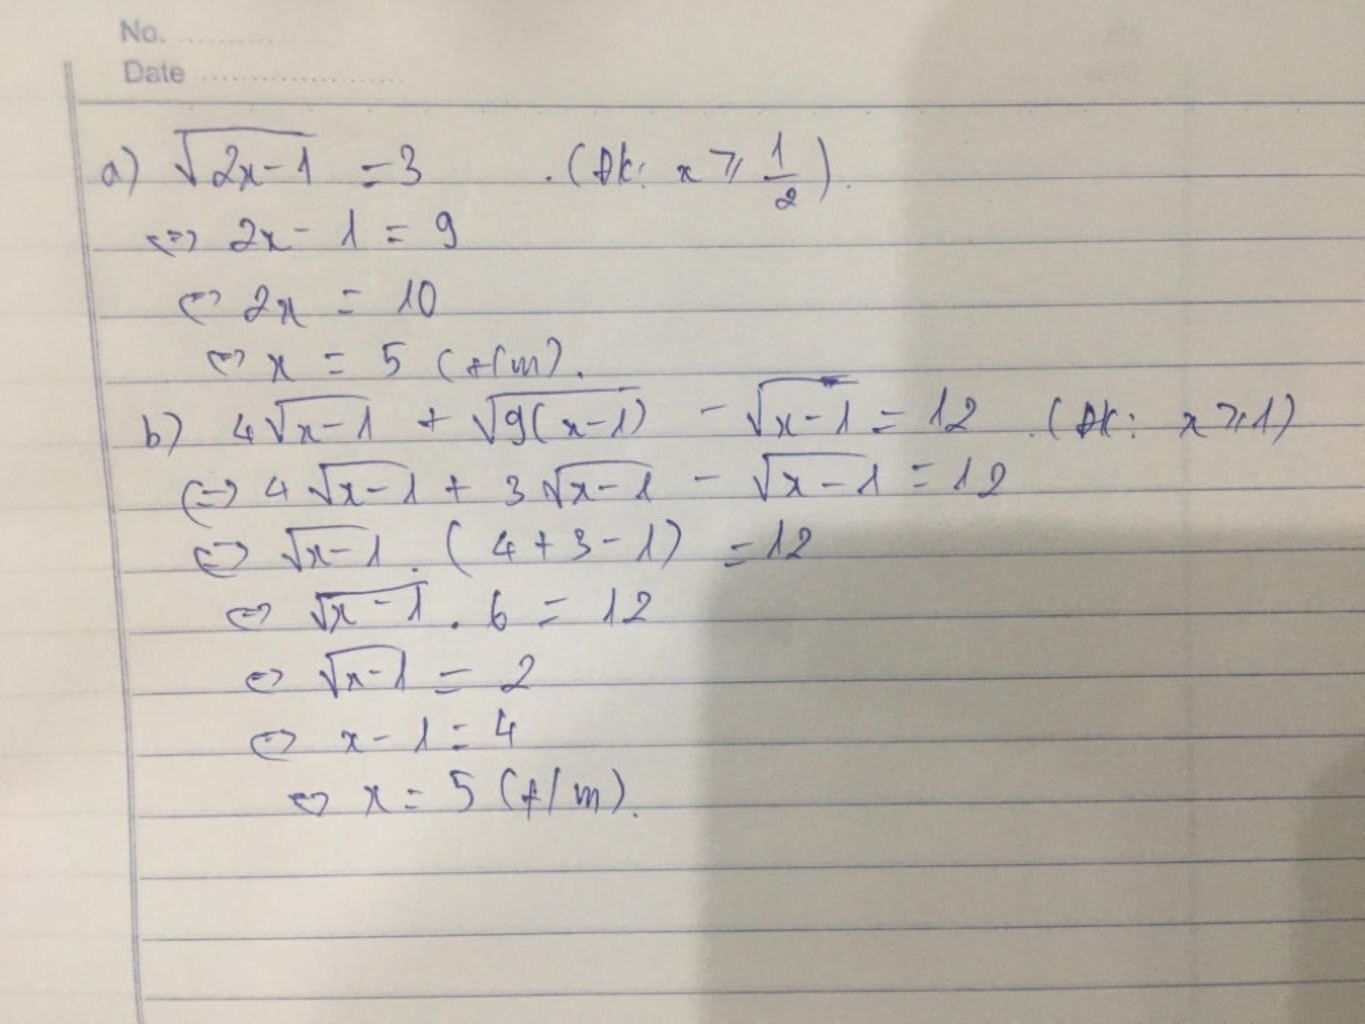 No. ............
Date ........................
a) √(2x-1) = 3 . (Đk: x ≥ 1/2).
<=> 2x - 1 = 9
<=> 2x = 10
<=> x = 5 (t/m).
b) 4√(x-1) + √(9(x-1)) - √(x-1) = 12 . (Đk: x ≥ 1)
<=> 4√(x-1) + 3√(x-1) - √(x-1) = 12
<=> √(x-1) . (4+3-1) = 12
<=> √(x-1) . 6 = 12
<=> √(x-1) = 2
<=> x - 1 = 4
<=> x = 5 (t/m).